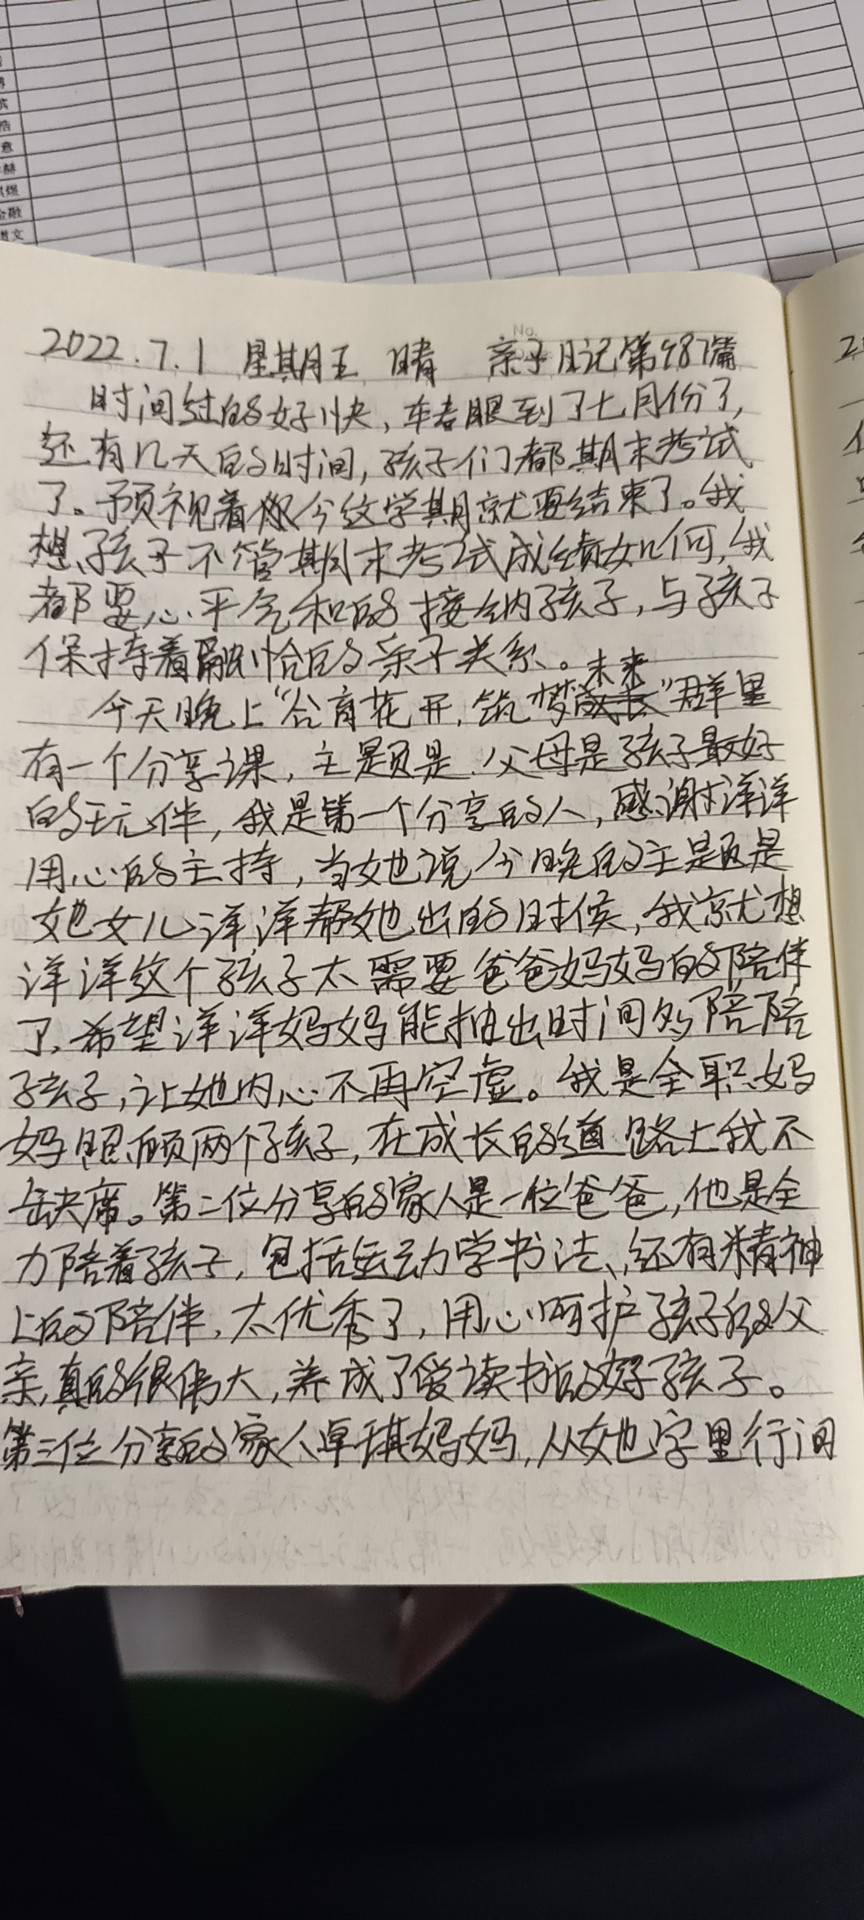 博
浩
意
赫
煜
金融
文
No.
2022.7.1 星期五 晴 亲子日记第987篇
时间过的好快,转眼到了七月份了,
还有几天的时间,孩子们都期末考试
了。预视着你今这学期就要结束了。我
想孩子不管期末考试成绩如何,我
都要心平气和的接纳孩子,与孩子
保持着融洽的亲子关系。
今天晚上“合育花开,筑梦未来”群里
有一个分享课,主题是,父母是孩子最好
的玩伴,我是第一个分享的人,感谢洋洋
用心的主持,当她说今晚的主题是
她女儿洋洋帮她出的时候,我就想
洋洋这个孩子太需要爸爸妈妈的陪伴
了,希望洋洋妈妈能抽出时间多陪陪
孩子,让她内心不再空虚。我是全职妈
妈照顾两个孩子,在成长的道路上我不
缺席。第二位分享的家人是一位爸爸,他是全
力陪着孩子,包括运动学书法,还有精神
上的陪伴,太优秀了,用心呵护孩子的父
亲,真的很伟大,养成了爱读书的好孩子。
第三位分享的家人卓琪妈妈,从她字里行间